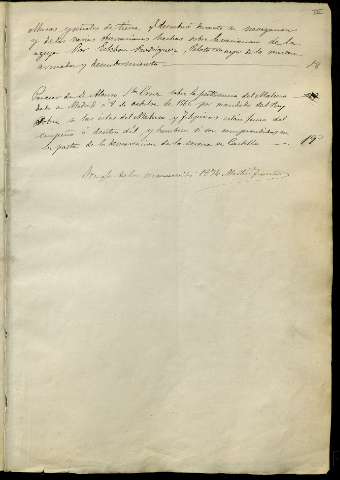 alturas y señales de tierra q.e descubrió durante su navegacion
y de las varias observaciones hechas sobre la variacion de la
aguja Por Esteban Rodriguez, Piloto mayor de la misma
armada y descubrimiento 18
Parecer de D. Alonso S.ta Cruz sobre la pertenencia del Maluco
dado en Madrid á 8 de octubre de 1566 por mandado del Rey
sobre si las islas del Maluco y Filipinas están fuera del
empeño ó dentro del, y tambien si son comprendidas en
la parte de la demarcacion de la corona de Castilla 19
de los manuscritos